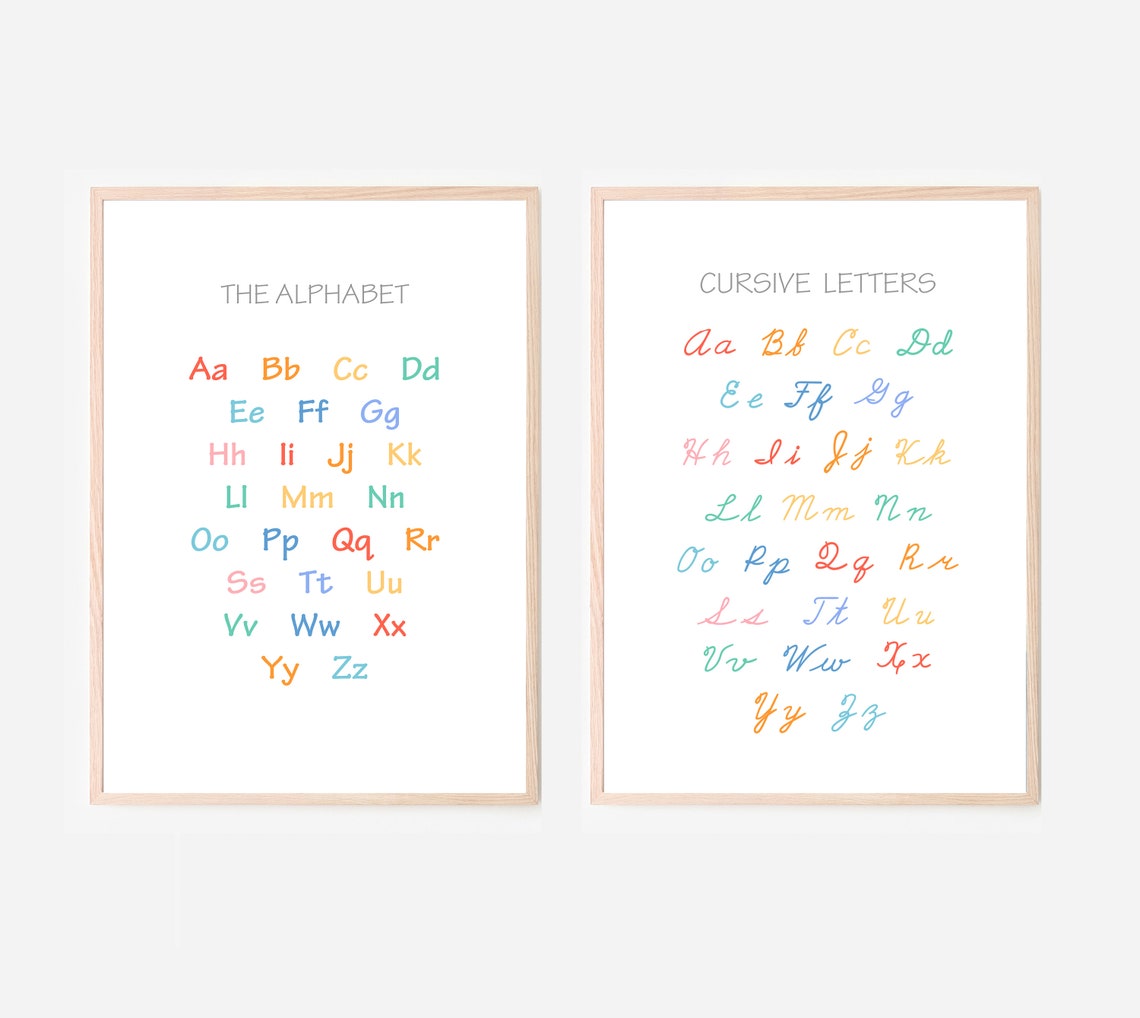 THE ALPHABET
Aa Bb Cc Dd
Ee Ff Gg
Hh Ii Jj Kk
Ll Mm Nn
Oo Pp Qq Rr
Ss Tt Uu
Vv Ww Xx
Yy Zz
CURSIVE LETTERS
Aa Bb Cc Dd
Ee Ff Gg
Hh Ii Jj Kk
Ll Mm Nn
Oo Pp Qq Rr
Ss Tt Uu
Vv Ww Xx
Yy Zz